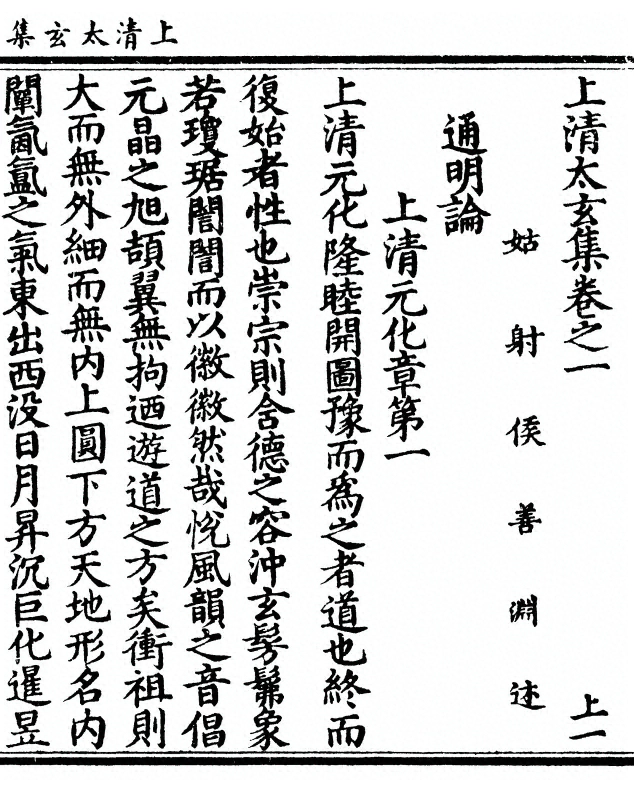 上清太玄集
上清太玄集卷之一 上一
姑射侯善淵述
通明論
上清元化章第一
上清元化隆睦開圖豫而為之者道也終而
復始者性也崇宗則含德之容沖玄髣髴象
若瓊琚誾誾而以徽徽然哉悅風韻之音倡
元晶之旭頡翼無拘迺遊道之方矣衝祖則
大而無外細而無內上圓下方天地形名內
闡氤氳之氣東出西沒日月昇沉巨化暹昱